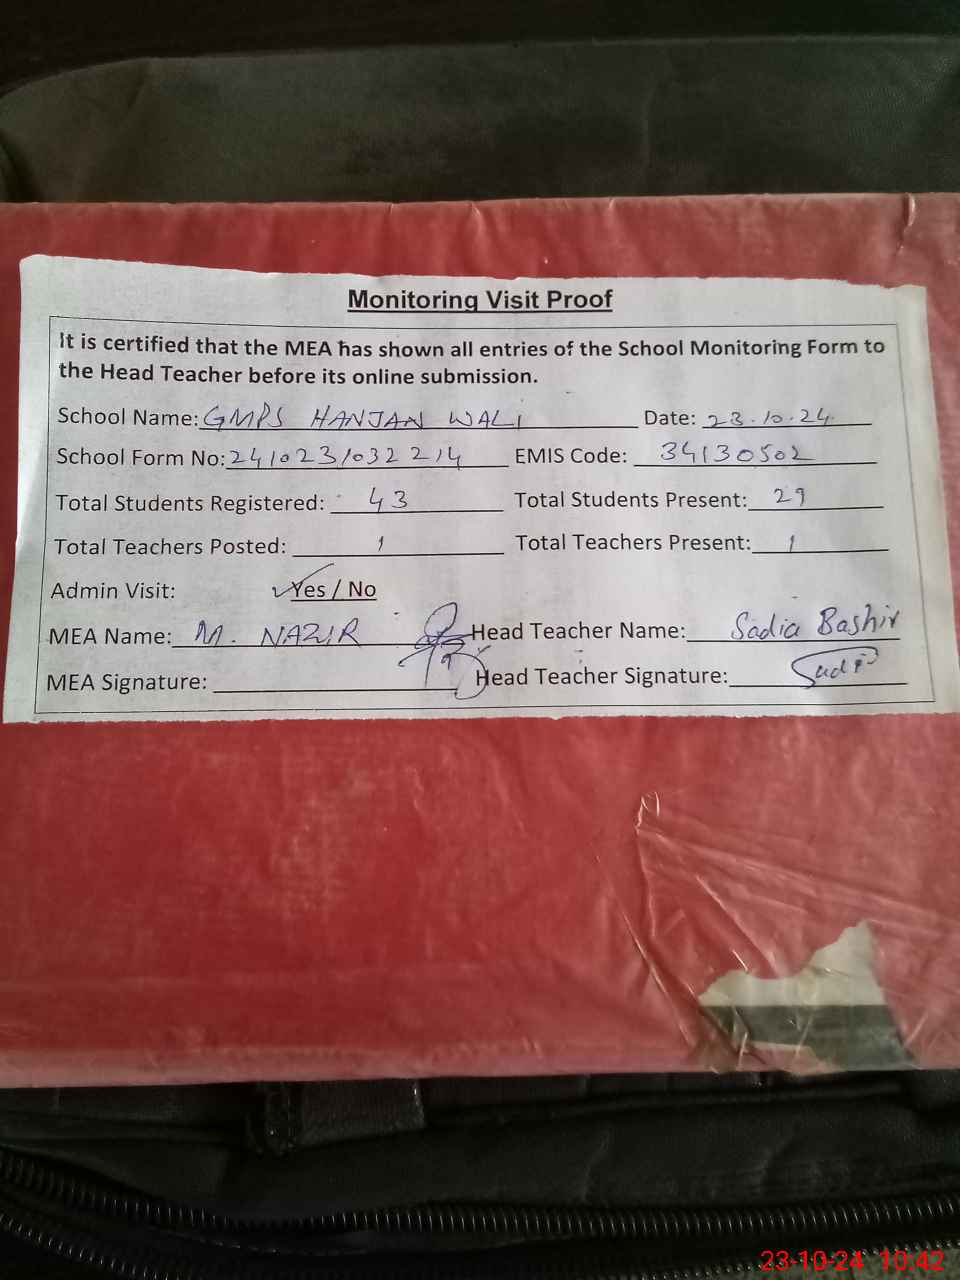 Monitoring Visit Proof
It is certified that the MEA has shown all entries of the School Monitoring Form to
the Head Teacher before its online submission.
School Name: GMPS HANJAN WALI Date: 23.10.24
School Form No: 2410231032214 EMIS Code: 34130502
Total Students Registered: 43 Total Students Present: 29
Total Teachers Posted: 1 Total Teachers Present: 1
Admin Visit: Yes / No
MEA Name: M. NAZIR Head Teacher Name: Sadia Bashir
MEA Signature: Head Teacher Signature:
23-10-24 10:42